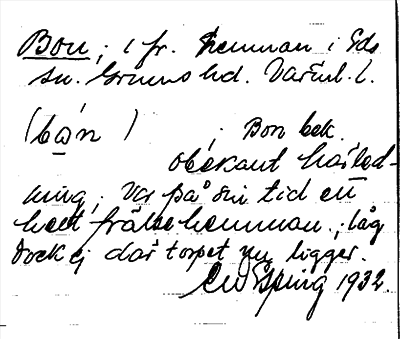 Bon; i fr. hemman i Eds
sn. Grums hd. Värml. l.
(bo̱n) Bon bek.
obekant härled-
ning; var på sin tid ett
helt frälsehemman; låg
dock ej där torpet nu ligger.
1932.